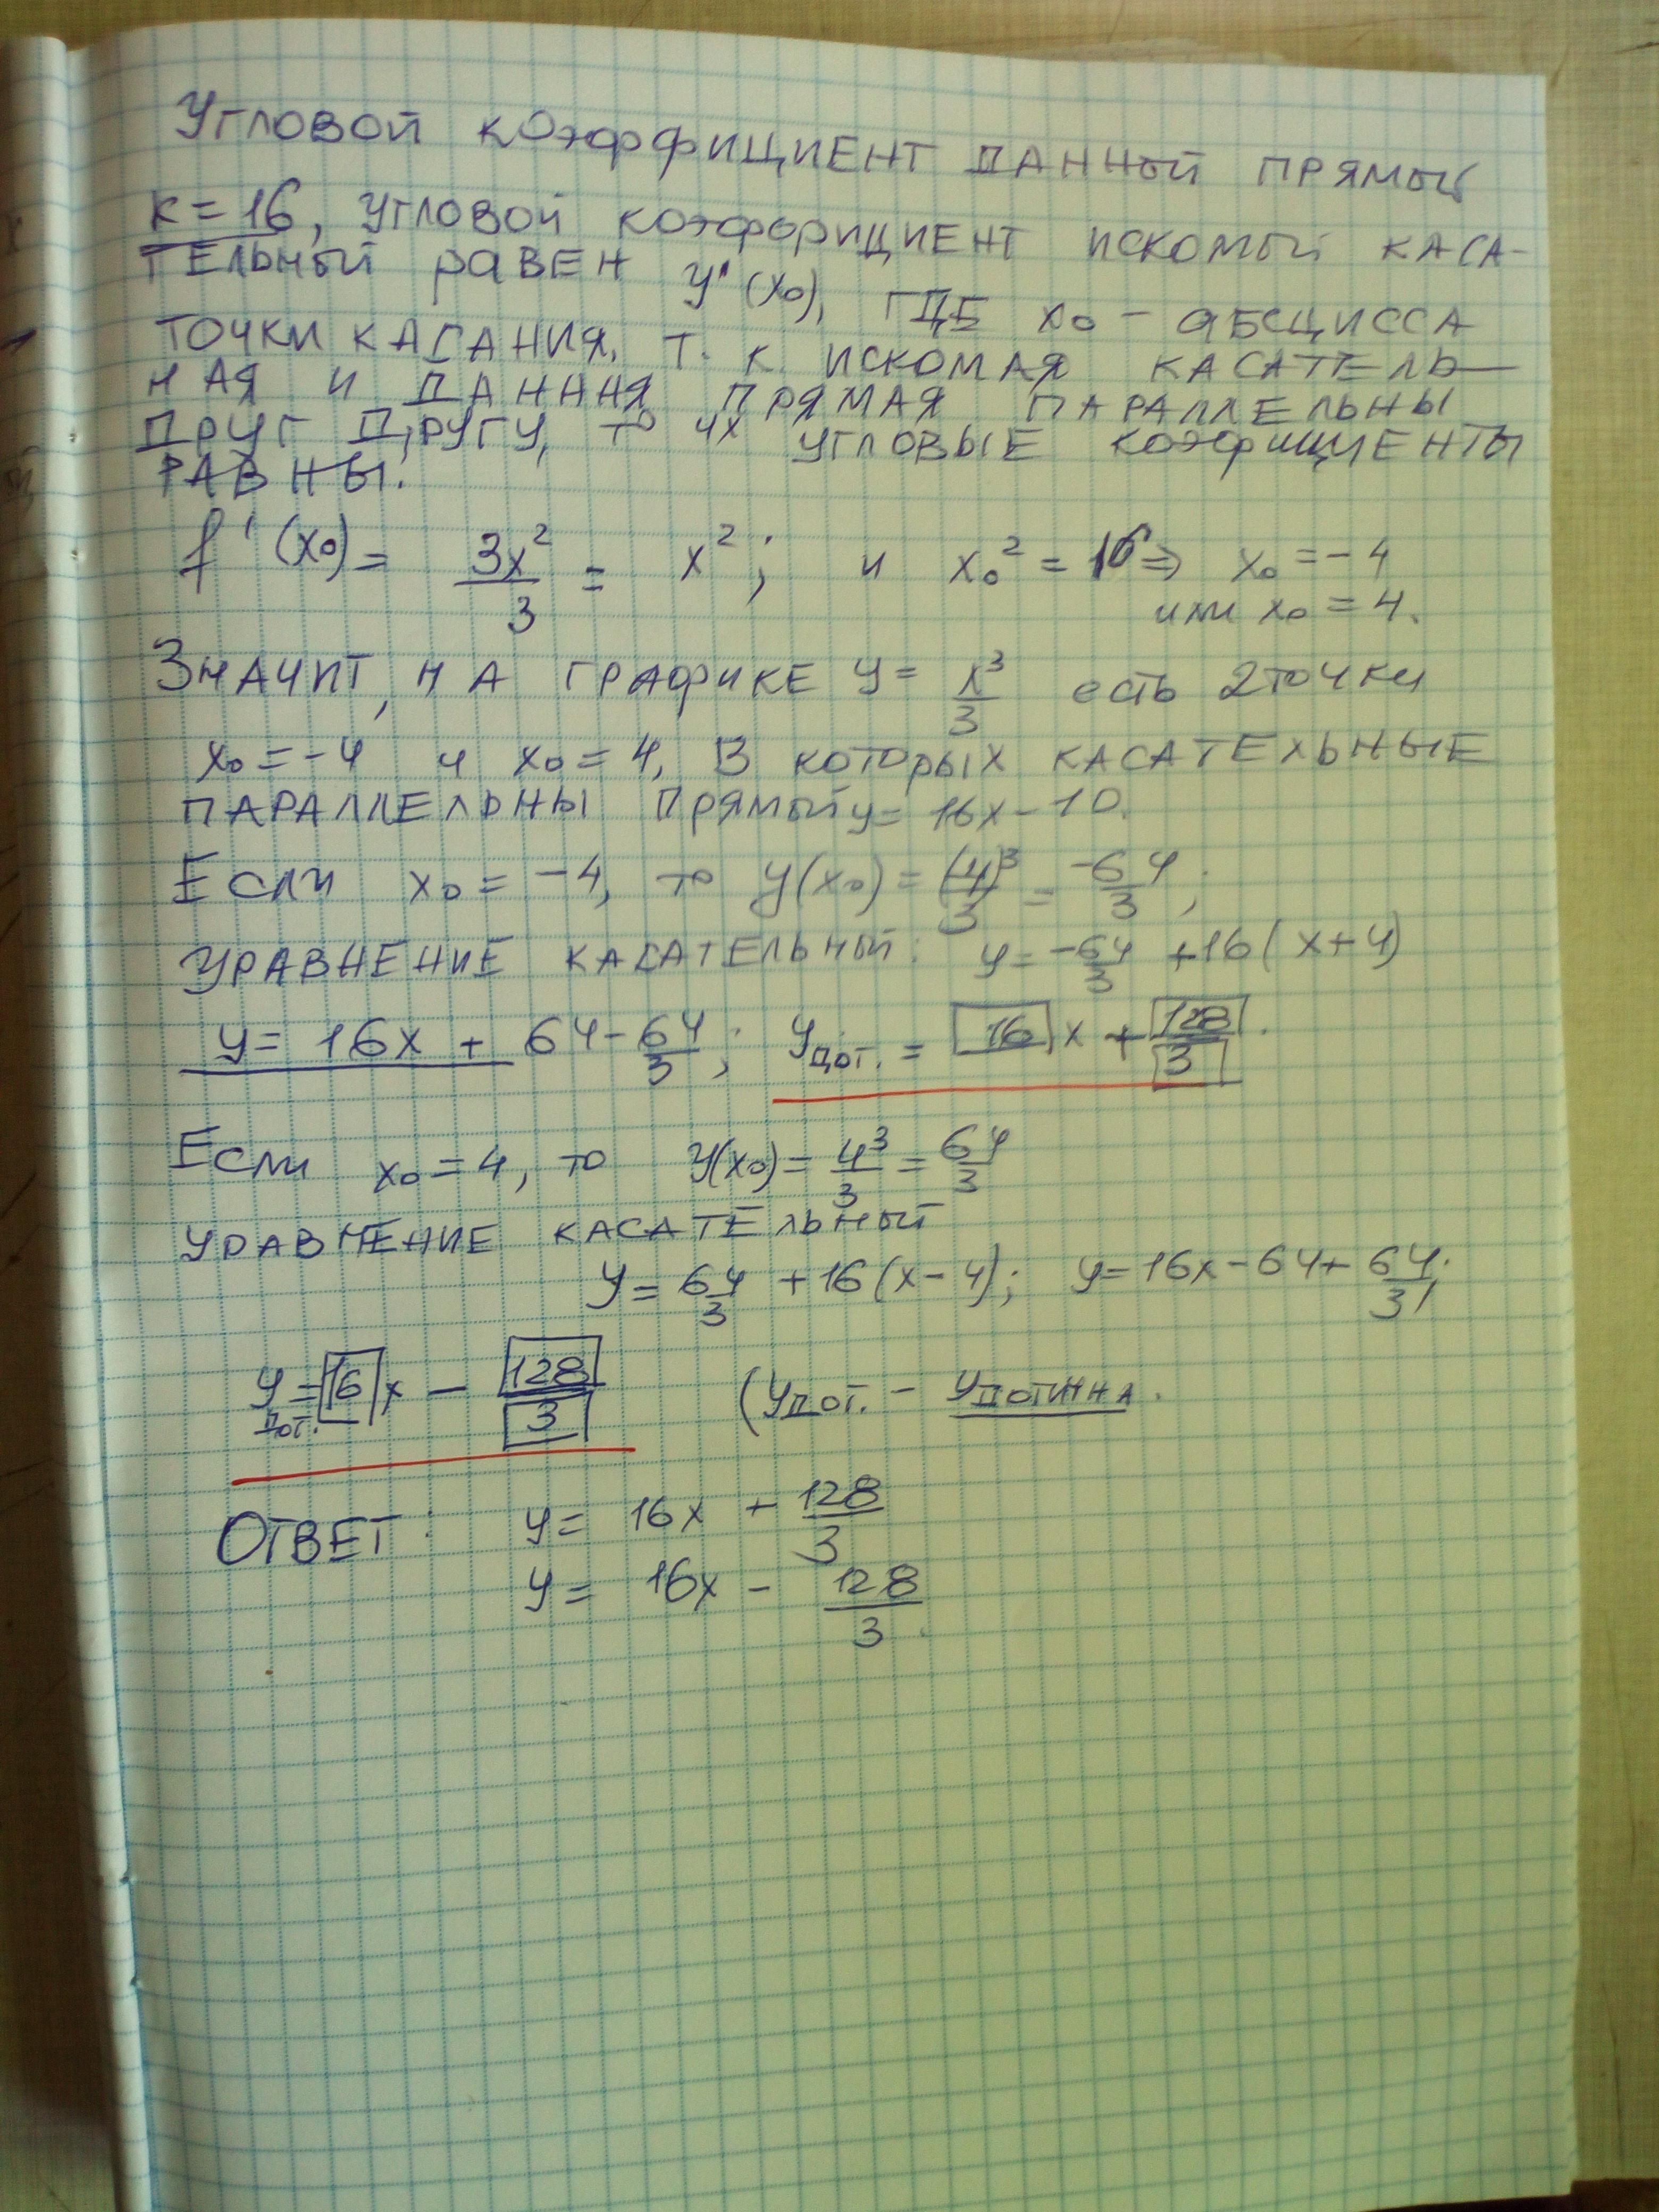 Угловой коэффициент данный прямый
k = 16, угловой коэффорициент искомый каса-
тельный равен y'(x₀), где x₀ – абсцисса
точки касания, т. к. искомая касатель-
ная и данння прямая параллельны
друг другу, то их угловые коэфициенты
равны.
f'(x₀) = 3x²/3 = x²; и x₀² = 16 ⇒ x₀ = -4
или x₀ = 4.
Значит, на графике y = x³/3 есть 2 точки
x₀ = -4 и x₀ = 4, в которых касательные
параллельны прямый y = 16x - 10.
Если x₀ = -4, то y(x₀) = (-4)³/3 = -64/3;
уравнение касательный: y = -64/3 + 16(x+4)
y = 16x + 64 - 64/3; yдот. = 16x + 128/3.
Если x₀ = 4, то y(x₀) = 4³/3 = 64/3
уравнение касательный
y = 64/3 + 16(x - 4); y = 16x - 64 + 64/3;
yдот. = 16x - 128/3 (удот. - удотинна.
Ответ: y = 16x + 128/3
y = 16x - 128/3.